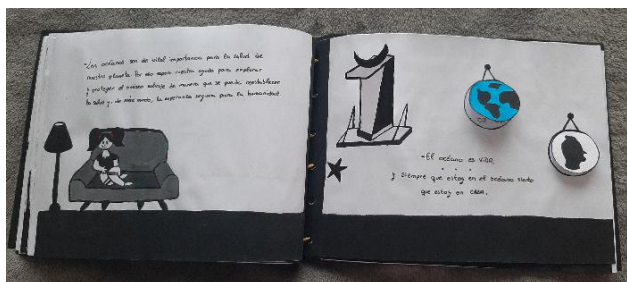 "Los océanos son de vital importancia para la salud de
nuestro planeta. Por eso espero vuestra ayuda para explorar
y proteger el océano salvaje de manera que se pueda reestablecer
la salud y, de este modo, la esperanza segura para la humanidad.
"El océano es VIDA,
y siempre que estoy en el océano siento
que estoy en CASA.